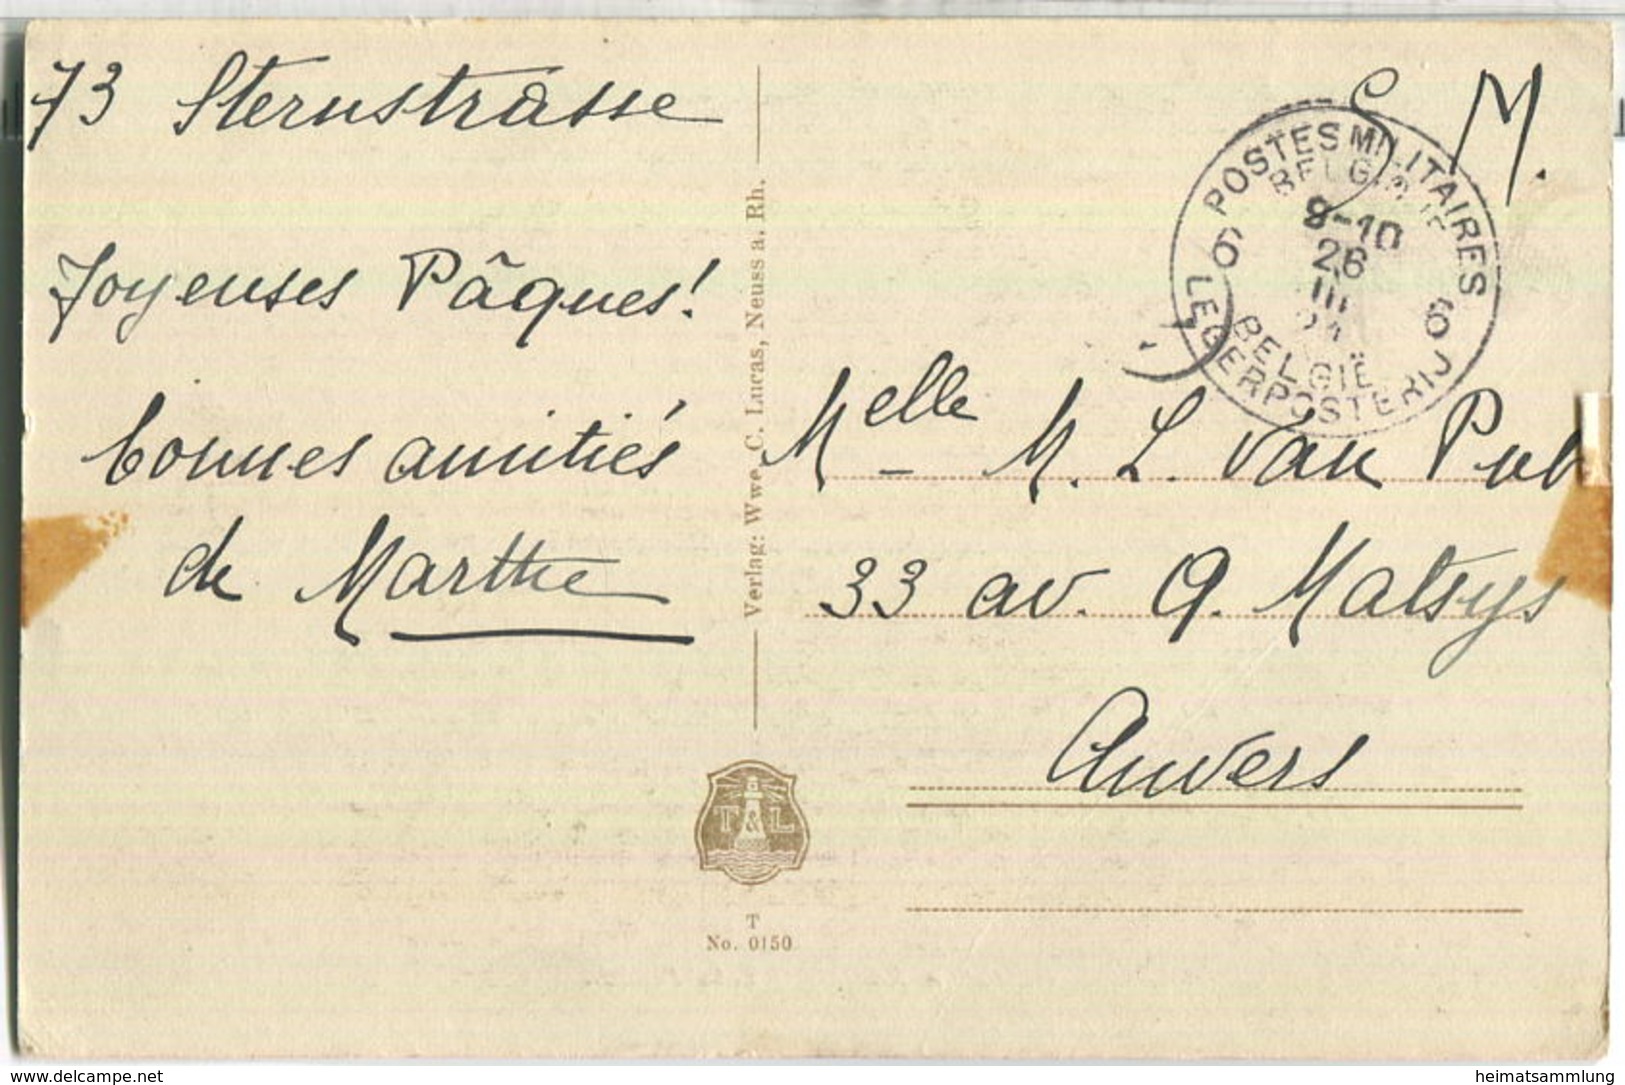 73 Sternstrasse
Joyeuses Pâques!
bonnes amitiés
de Marthe
Verlag: Wwe. C. Lucas, Neuss a. Rh.
T & L
T
No. 0150
S. M.
POSTES MILITAIRES
BELGIQUE
8-10
26
III
6 6
BELGIË
LEGERPOSTERIJ
Melle M. L. Van Put
33 av. Q. Matsys
Anvers
www.delcampe.net
heimatsammlung